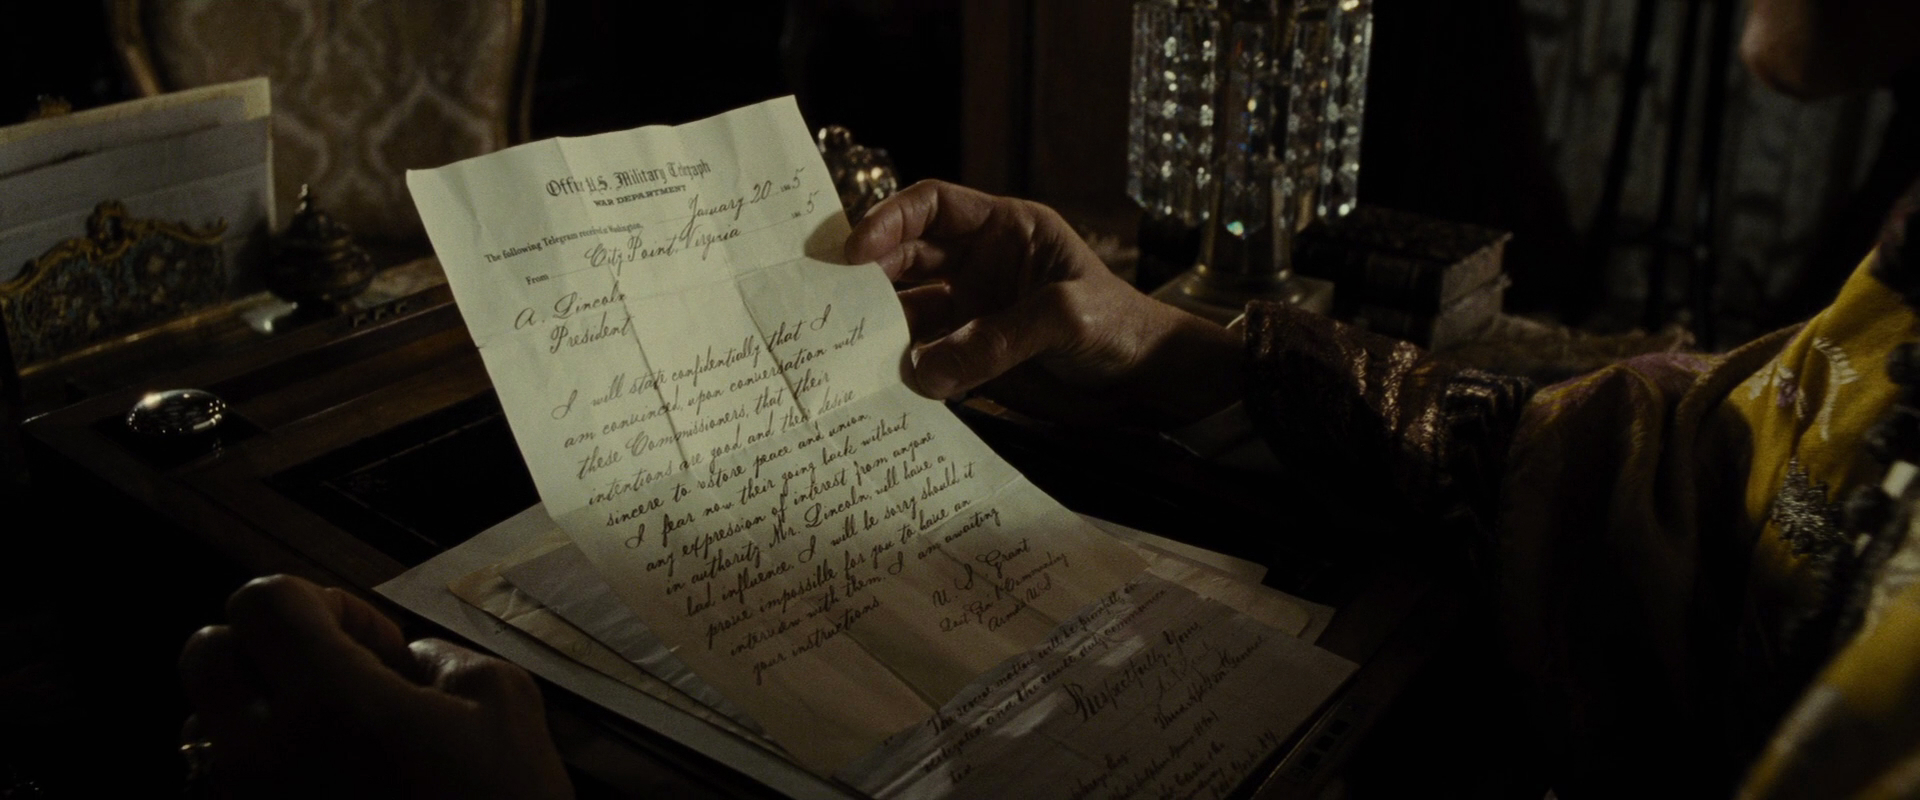 Office U.S. Military Telegraph
WAR DEPARTMENT
January 20 186 5
The following Telegram received at Washington, 186 5
From City Point, Virginia
A. Lincoln
President
I will state confidentially that I
am convinced, upon conversation with
these Commissioners, that their
intentions are good and their desire
sincere to restore peace and union.
I fear now their going back without
any expression of interest from anyone
in authority, Mr. Lincoln, will have a
bad influence. I will be sorry should it
prove impossible for you to have an
interview with them. I am awaiting
your instructions.
U S Grant
Lieut. Gen'l Commanding
Armies U.S
Respectfully Yours